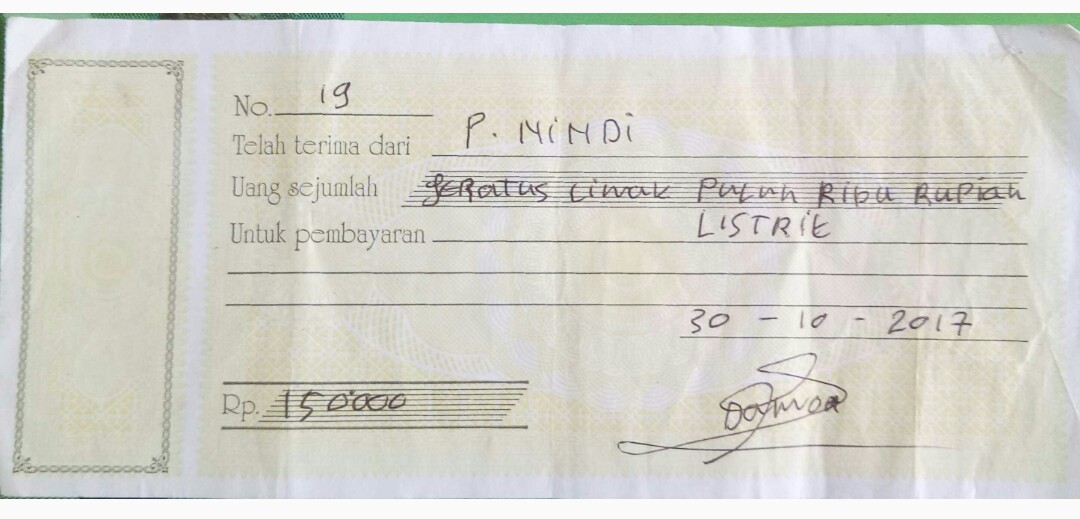 No. 19
Telah terima dari P. MiMDi
Uang sejumlah SeRatus Limak Puluh Ribu Rupiah
Untuk pembayaran LISTRiK
30 - 10 - 2017
Rp. 150.000